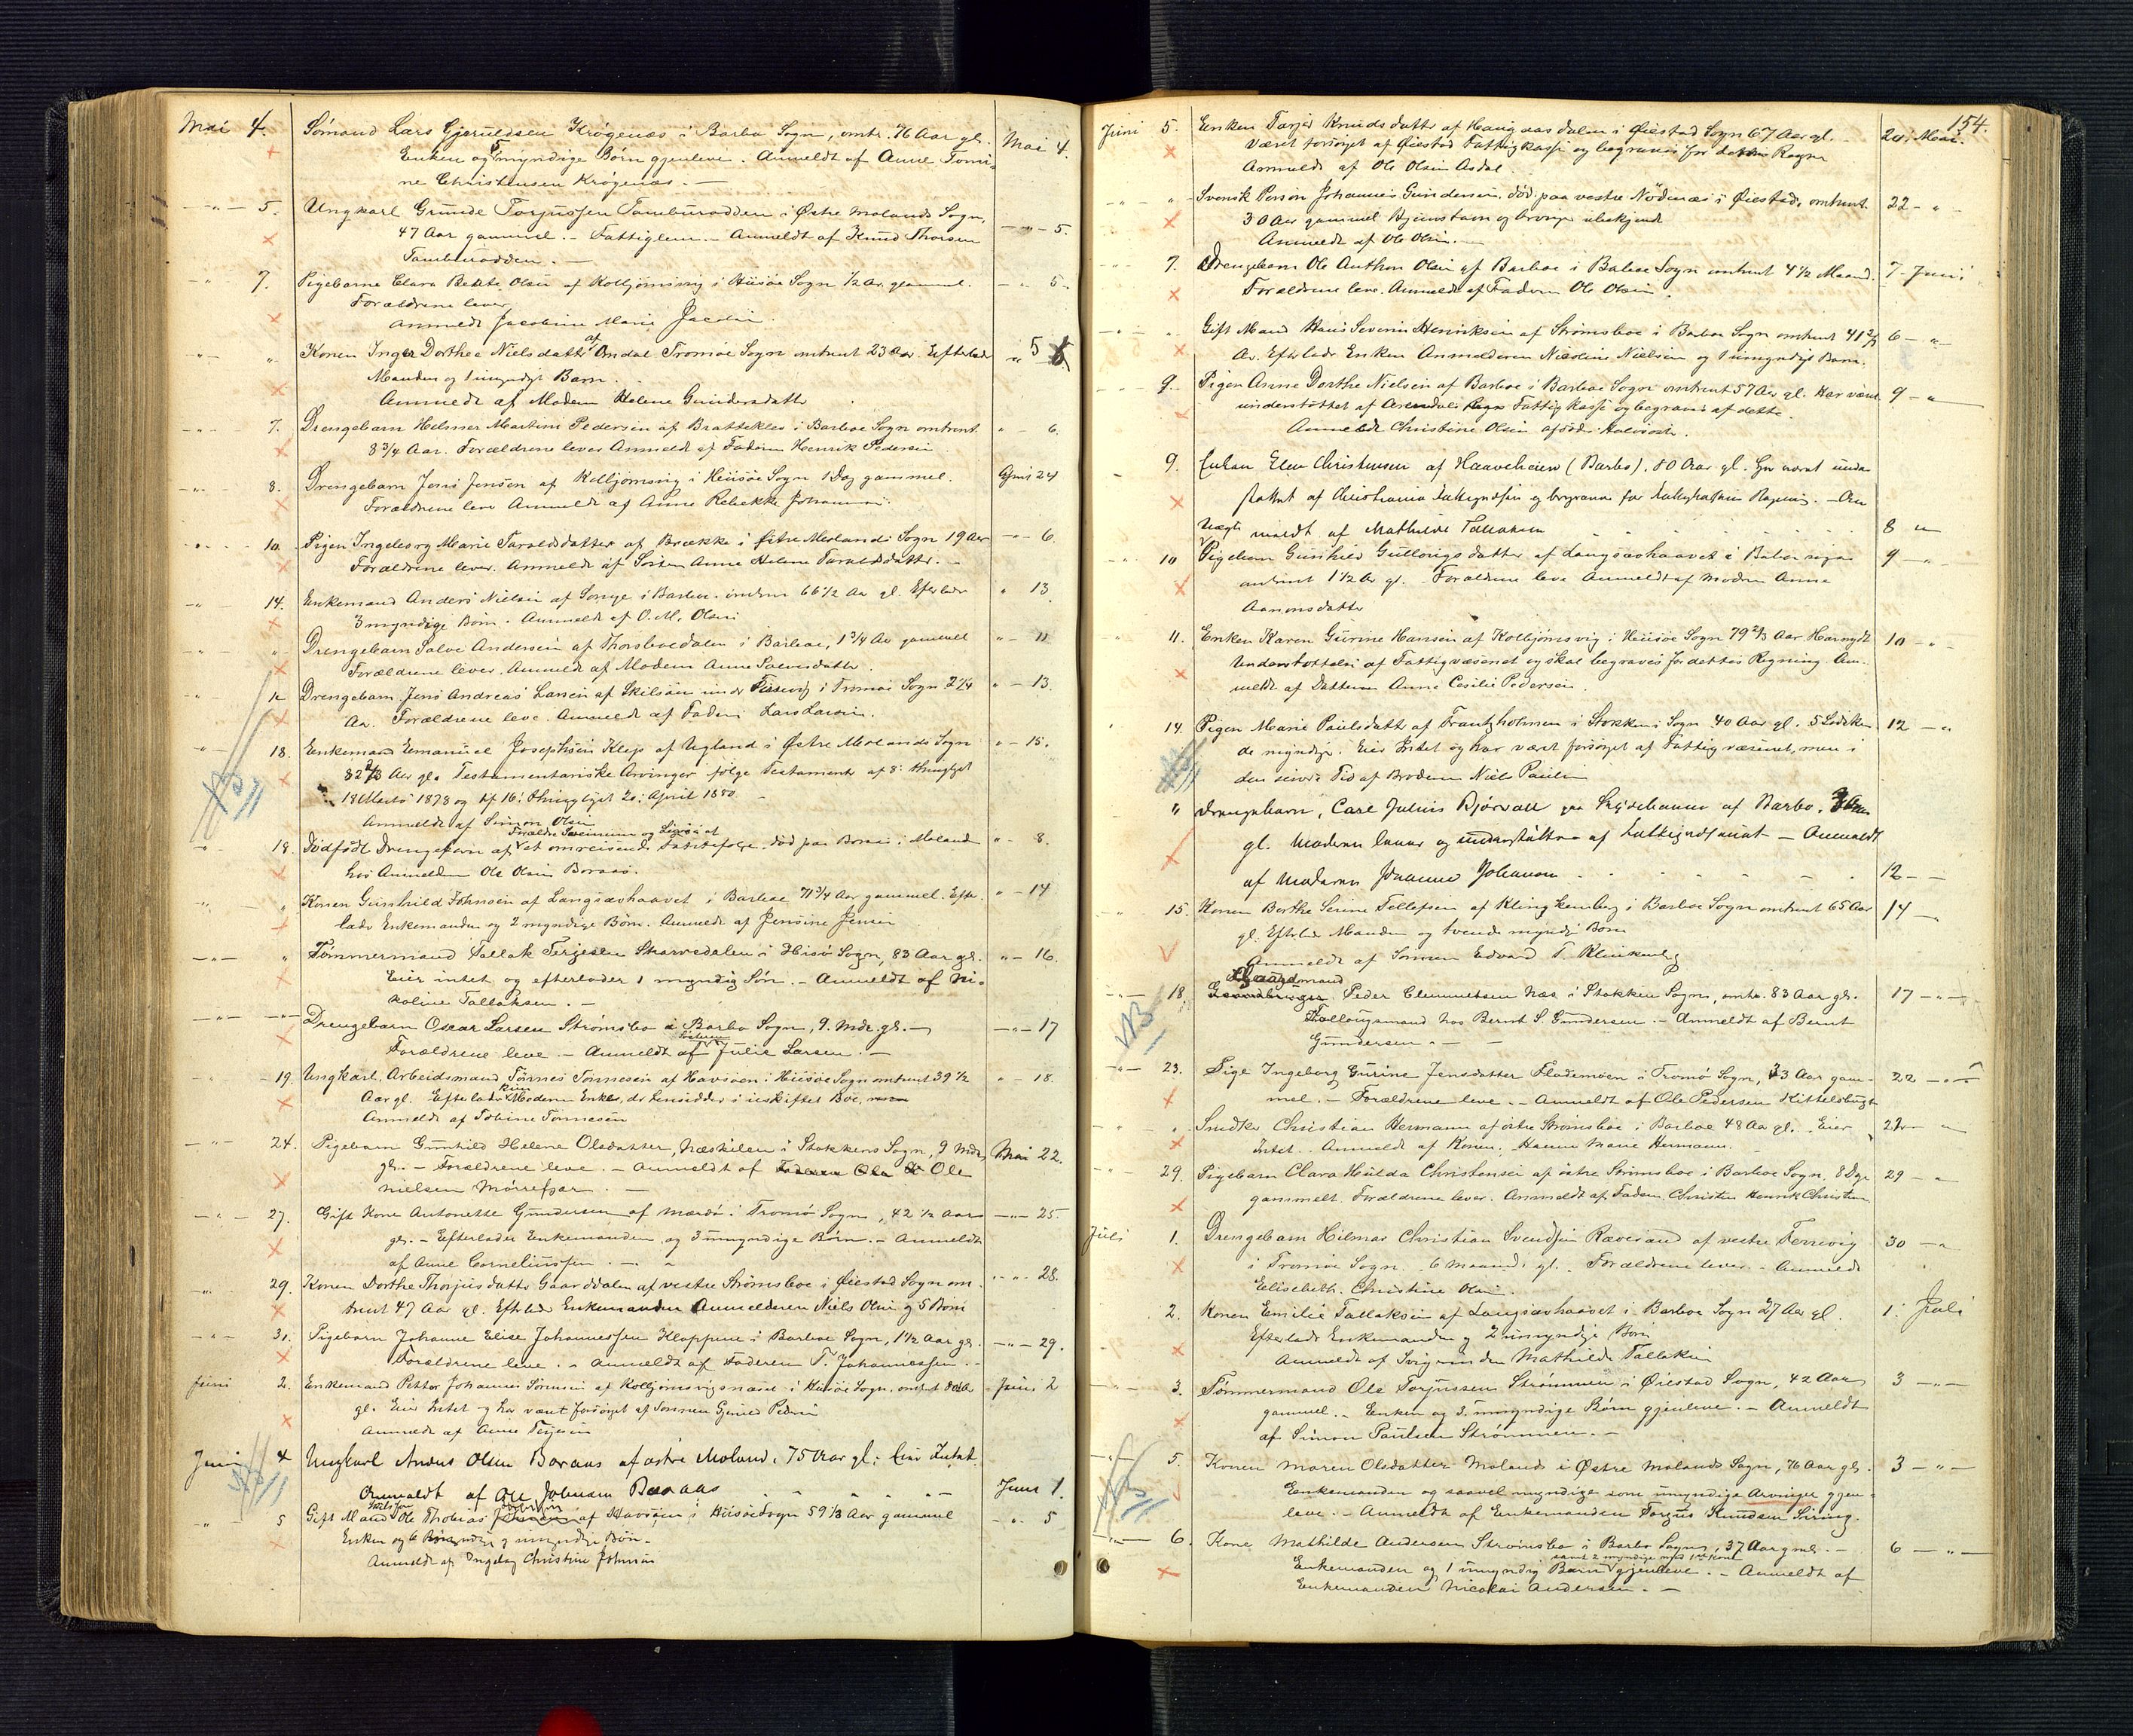 Mai 4. Sömand Lars Gjeruldsen Krögenæs i Barbo Sogn, omtr. 76 Aar gl. Mai 4.
Enken og 5 myndige Börn gjenleve. Anmeldt af Anne Tomi-
ne Christensen Krögenæs. —
—„— 5. Ungkarl Grunde Torjussen Tamburodden i Østre Molands Sogn, —„— 5.
47 Aar gammel. — Fattiglem. — Anmeldt af Knud Thorsen
Tamburodden. —
—„— 7. Pigebarne Clara Olsen af Kolbjörnsvig i Hisöe Sogn ½ Ar gammel. —„ 5.
Forældrene lever
Anmeldt Jacobine Marie
—„— „ Konen Inger Dorthea Nielsdatter af Omdal Tromöe Sogn omtrent 23 Aar. Efterlader „ 5
Manden og 1 umyndigt Barn.
Anmeldt af Modern Helene Gundersdatter
—„— 7. Drengebarn Helmer Martin Pedersen af Bratteklev i Barboe Sogn omtrent „ 6.
8 3/4 Aar. Forældrene lever Anmeldt af Fadern Henrik Pedersen
—„— 8. Drengebarn Jens Jensen af Kolbjörnsvig i Hiisöe Sogn 1 Dag gammel. April 24
Forældrene leve Anmeldt af Anne Rebekke
—„— 10. Pigen Ingeborg Marie Taraldsdatter af Brække i Østre Molands Sogn 19 Aar —„— 6.
Forældrene lever. Anmeldt af Søsteren Anne Helene Taraldsdatter. —
—„— 14. Enkemand Anders Nielsen af Songe i Barbo. omtrent 66 1/2 Aar gl. Efterlader „ 13
3 myndige Born. Anmeldt af O. M. Olsen
—„— „ Drengebarn Salve Andersen af Thorsboedalen i Barboe, 1 3/4 Ar gammel „— 11
Forældrene lever. Anmeldt af Modern Anne Salvesdatter.
Drengebarn Jens Andreas Larsen af Skilsöen i Tromöe Sogn 2 1/4 „— 13.
Aar. Forældrene leve. Anmeldt af Fadern Lars Larsen.
—„— 18. Enkemand Emanuel Josephsen Klep af Ugland i Østre Molands Sogn „— 15.
82 2/3 Aar gl. Testamentariske Arvinger följe Testamente af 8' thinglyst
18 Marts 1873 og af 16' thinglyst 20' April 1880. —
Anmeldt af Simon Olsen
18. Dödfödt Drengebarn af et omreisende död paa Boraas i Moland „— 8.
hos Anmelderen Ole Olsen Boraas.
„ Konen Gunhild Johnsen af Langsævhaavet i Barboe 71 3/4 Aar gammel. Efter- „— 14
lader Enkemanden og 2 myndige Börn. Anmeldt af Jensine Jensen
—„— „ Tömmermand Tallak Terjesen Skarvedalen i Hisö Sogn, 83 Aar gl. „— 16.
Eier intet og efterlader 1 myndig Sön. — Anmeldt af Ni-
koline Tallaksen. —
—„— —„— Drengebarn Oscar Larsen Strömsbo i Barbo Sogn, 9. Mdr. gl. — —„— 17
Forældrene leve. — Anmeldt af Julie Larsen. —
19. Ungkarl, Arbeidsmand Tönnes Tönnesen af Havsöen i Hiisöe Sogn omtrent 39 1/2 „— 18.
Aar gl. Efterlader kun Modern Enke, der hensidder i uskiftet Boe,
Anmeldt af Tobine Tonnesen
—„— 24. Pigebarn Gunhild Helene Olsdatter, Næskilen i Stokkens Sogn, 9 Mdr. Mai 22.
gl. — Forældrene leve. — Anmeldt af Ole
Nielsen Mörrefjær. —
—„— 27. Gift Kone Antonette Gundersen af Mærdö i Tromö Sogn, 42 1/2 Aar —„— 25.
gl. — Efterlader Enkemanden og 3 umyndige Börn. — Anmeldt
af Anne Corneliussen. —
—„— 29. Konen Dorthe Thorjusdatter Gaarddalen af vestre Strömsboe i Öiestad Sogn om- „— 28.
trent 47 Aar gl. Efterlader Enkemanden Anmelderen Niels Olsen og 5 Börn
—„— 31. Pigebarn Johanne Elise Johannessen Kloppene i Barboe Sogn, 1 1/2 Aar gl. —„— 29.
Forældrene leve. — Anmeldt af Faderen T. Johannessen. —
Juni 2. Enkemand Petter Johannes Sörensen af Kolbjörnsvigsnæset i Hiisöe Sogn. Juni 2
gl. Eier Intet og har været forsörget af Sonnen
Anmeldt af Anne Terjesen
Juni 4 Ungkarl Anders Olsen Boraas af østre Moland, 75 Aar gl: Eier Intet.
Anmeldt af Ole Johnsen Boraas Juni 1.
„ 5 Gift Mand Ole Thobias af Havsöen i Hiisöe Sogn 59 1/3 Aar gammel „ 5
Enken og 6 myndige og umyndige Börn.
Anmeldt af Ingeborg Christine Johnsen
154.
Juni 5. Enken Tarjer Knudsdatter af Haugaasdalen i Öiestad Sogn 67 Aar gl. 24 Mai.
Været forsörget af Öiestad Fattigkasse og begraves for dettes Regn
Anmeldt af Ole Olsen Asdal
„ „ Svensk Person Johannes Gundersen, död paa vestre Nödenæs i Öiestad. omtrent 22 — „
30 Aar gammel Hjemstavn og ubekjendt
Anmeldt af Ole Olsen. —
7. Drengebarn Ole Anthon Olsen af Barboe i Barboe Sogn omtrent 4 1/2 Maand. 7 Juni
Forældrene leve. Anmeldt af Fadern Ole Olsen.
„ Gift Mand Hans Severin Henriksen af Strömsboe i Barboe Sogn omtrent 41 2/3 6 — „
Ar. Efterlader Enken Anmelderen Nicoline Nielsen og 1 umyndigt Barn.
9. Pigen Anne Dorthe Nielsen af Barboe i Barboe Sogn omtrent 57 Aar gl. Har været 9 — „
understöttet af Arendals Fattigkasse og begraves af dette.
Anmeldt Christine Olsen
9. Enken Elen Christensen af Haaveheien (Barbo). 80 Aar gl. Har været under-
støttet af Christiania og begraves for Regning. — An-
meldt af Mathilde Tallaksen 8 „
10 Pigebarn Gunhild Gullovigsdatter af Langsævhaavet i Barbo sogn 9 —„—
omtrent 1 1/2 Ar gl. Forældrene leve Anmeldt af Modern Anne
Aanonsdatter
11. Enken Karen Gurine Hansen af Kolbjörnsvig i Hiisöe Sogn 79 2/3 Aar Har nydt 10 — „
Understöttelse af Fattigvæsenet og skal begraves for dettes Regning An-
meldt af Datteren Anne Cecilie Pedersen.
14. Pigen Marie Paulsdatter af Frantzholmen i Stokkens Sogn 40 Aar gl. 5 Södsken- 12 — „
de myndige. Eier Intet og har været forsörget af Fattigvæsenet, men i
den senere Tid af Broderen Niels Paulsen
„ Drengebarn, Carl Julius Björvatt af Barbo.
gl. Moderen lever og understøttes af Fattigvæsenet — Anmeldt
af Moderen Johanne Johansen 12 — —
15. Konen Berthe Serine Tellefsen af Klingkenberg i Barboe Sogn omtrent 65 Aar 14 — „
gl. Efterlader Manden og tvende myndige Born
Anmeldt af Sonnen Edvard T. Klinkenberg
18. Peder Clemmetsen Næs i Stokken Sogn, omtr. 83 Aar gl. 17 — „ —
Follougsmand hos Bernt S. Gundersen. — Anmeldt af Bernt
Gundersen. — —
—„— 23. Pige Ingeborg Gurine Jensdatter Flademoen i Tromö Sogn, 33 Aar gam- 22 — „ —
mel. — Forældrene leve. — Anmeldt af Ole Pedersen Kittelsbugt
„ Snedker Christian Hermann af östre Strömsboe i Barboe 48 Aar gl. Eier
Intet. Anmeldt af Konen, Hanne Marie Hermann.
29. Pigebarn Clara Hulda Christensen af östre Strömsboe i Barboe Sogn, 8 Dge 29 — „
gammelt. Forældrene lever. Anmeldt af Fadern Christen Henrik Christen
Juli 1. Drengebarn Hilmar Christian Svendsen Rævesand af vestre Ferrevig 30 — „
i Tromöe Sogn. 6 maand. gl. Forældrene lever. Anmeldt
Elisebeth Christine Olsen.
2. Konen Emilie Tallaksen af Langsævhaavet i Barboe Sogn 27 Aar gl. 1. Juli
Efterlader Enkemanden og 2 umyndige Börn
Anmeldt af Svigerinden Mathilde Tallaksen
3. Tömmermand Ole Torjussen Strömmen i Öiestad Sogn, 42 Aar 3 —„—
gammel. — Enken og 3. umyndige Börn gjenleve. — Anmeldt
af Simon Paulsen Strömmen. —
—„— 5. Konen Maren Olsdatter Molands i Östre Molands Sogn, 76 Aar gl. 3 — „ —
Enkemanden og saavel myndige som umyndige Arvinger gjen-
leve. — Anmeldt af Enkemanden Torjus Knudsen Siring.
—„— 6. Kone Mathilde Andersen Strömsbo i Barbo Sogn, 37 Aar gml. — 6 — „ —
samt 2 myndige med 1ste Kone
Enkemanden og 1 umyndig Barn gjenleve. — Anmeldt af
Enkemanden Nicolai Andersen. —